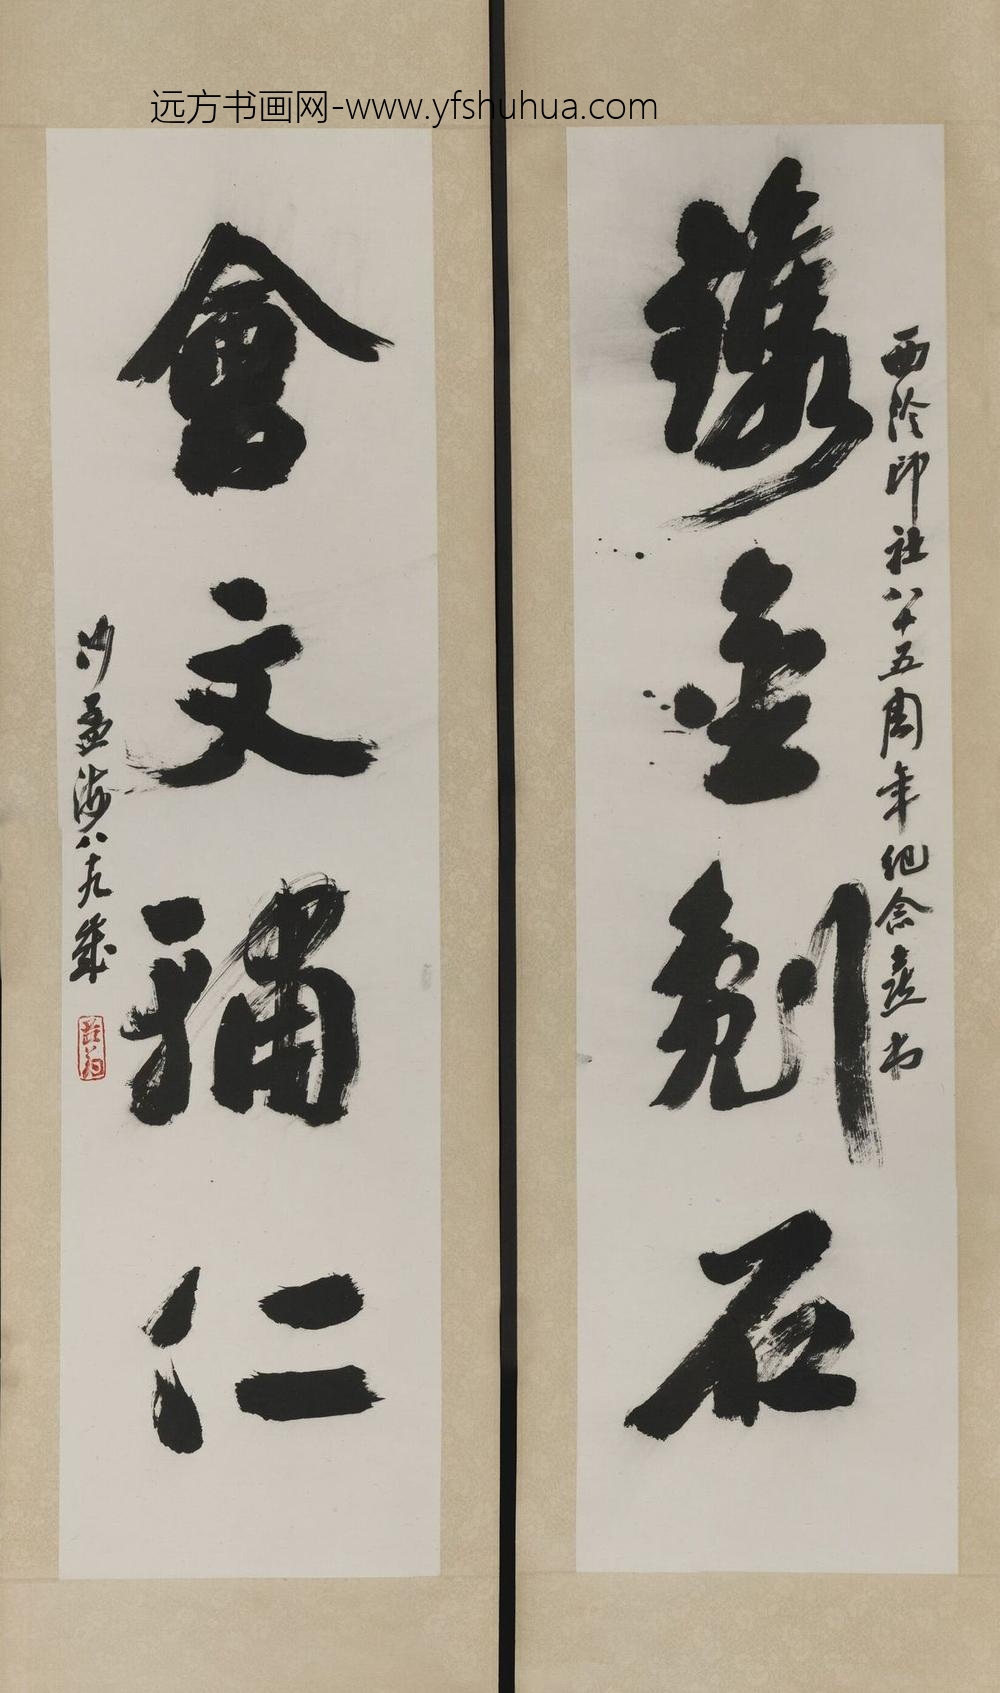 远方书画网-www.yfshuhua.com
西泠印社八十五周年纪念喜书
镂金刻石
會文辅仁
沙孟海八十九歲